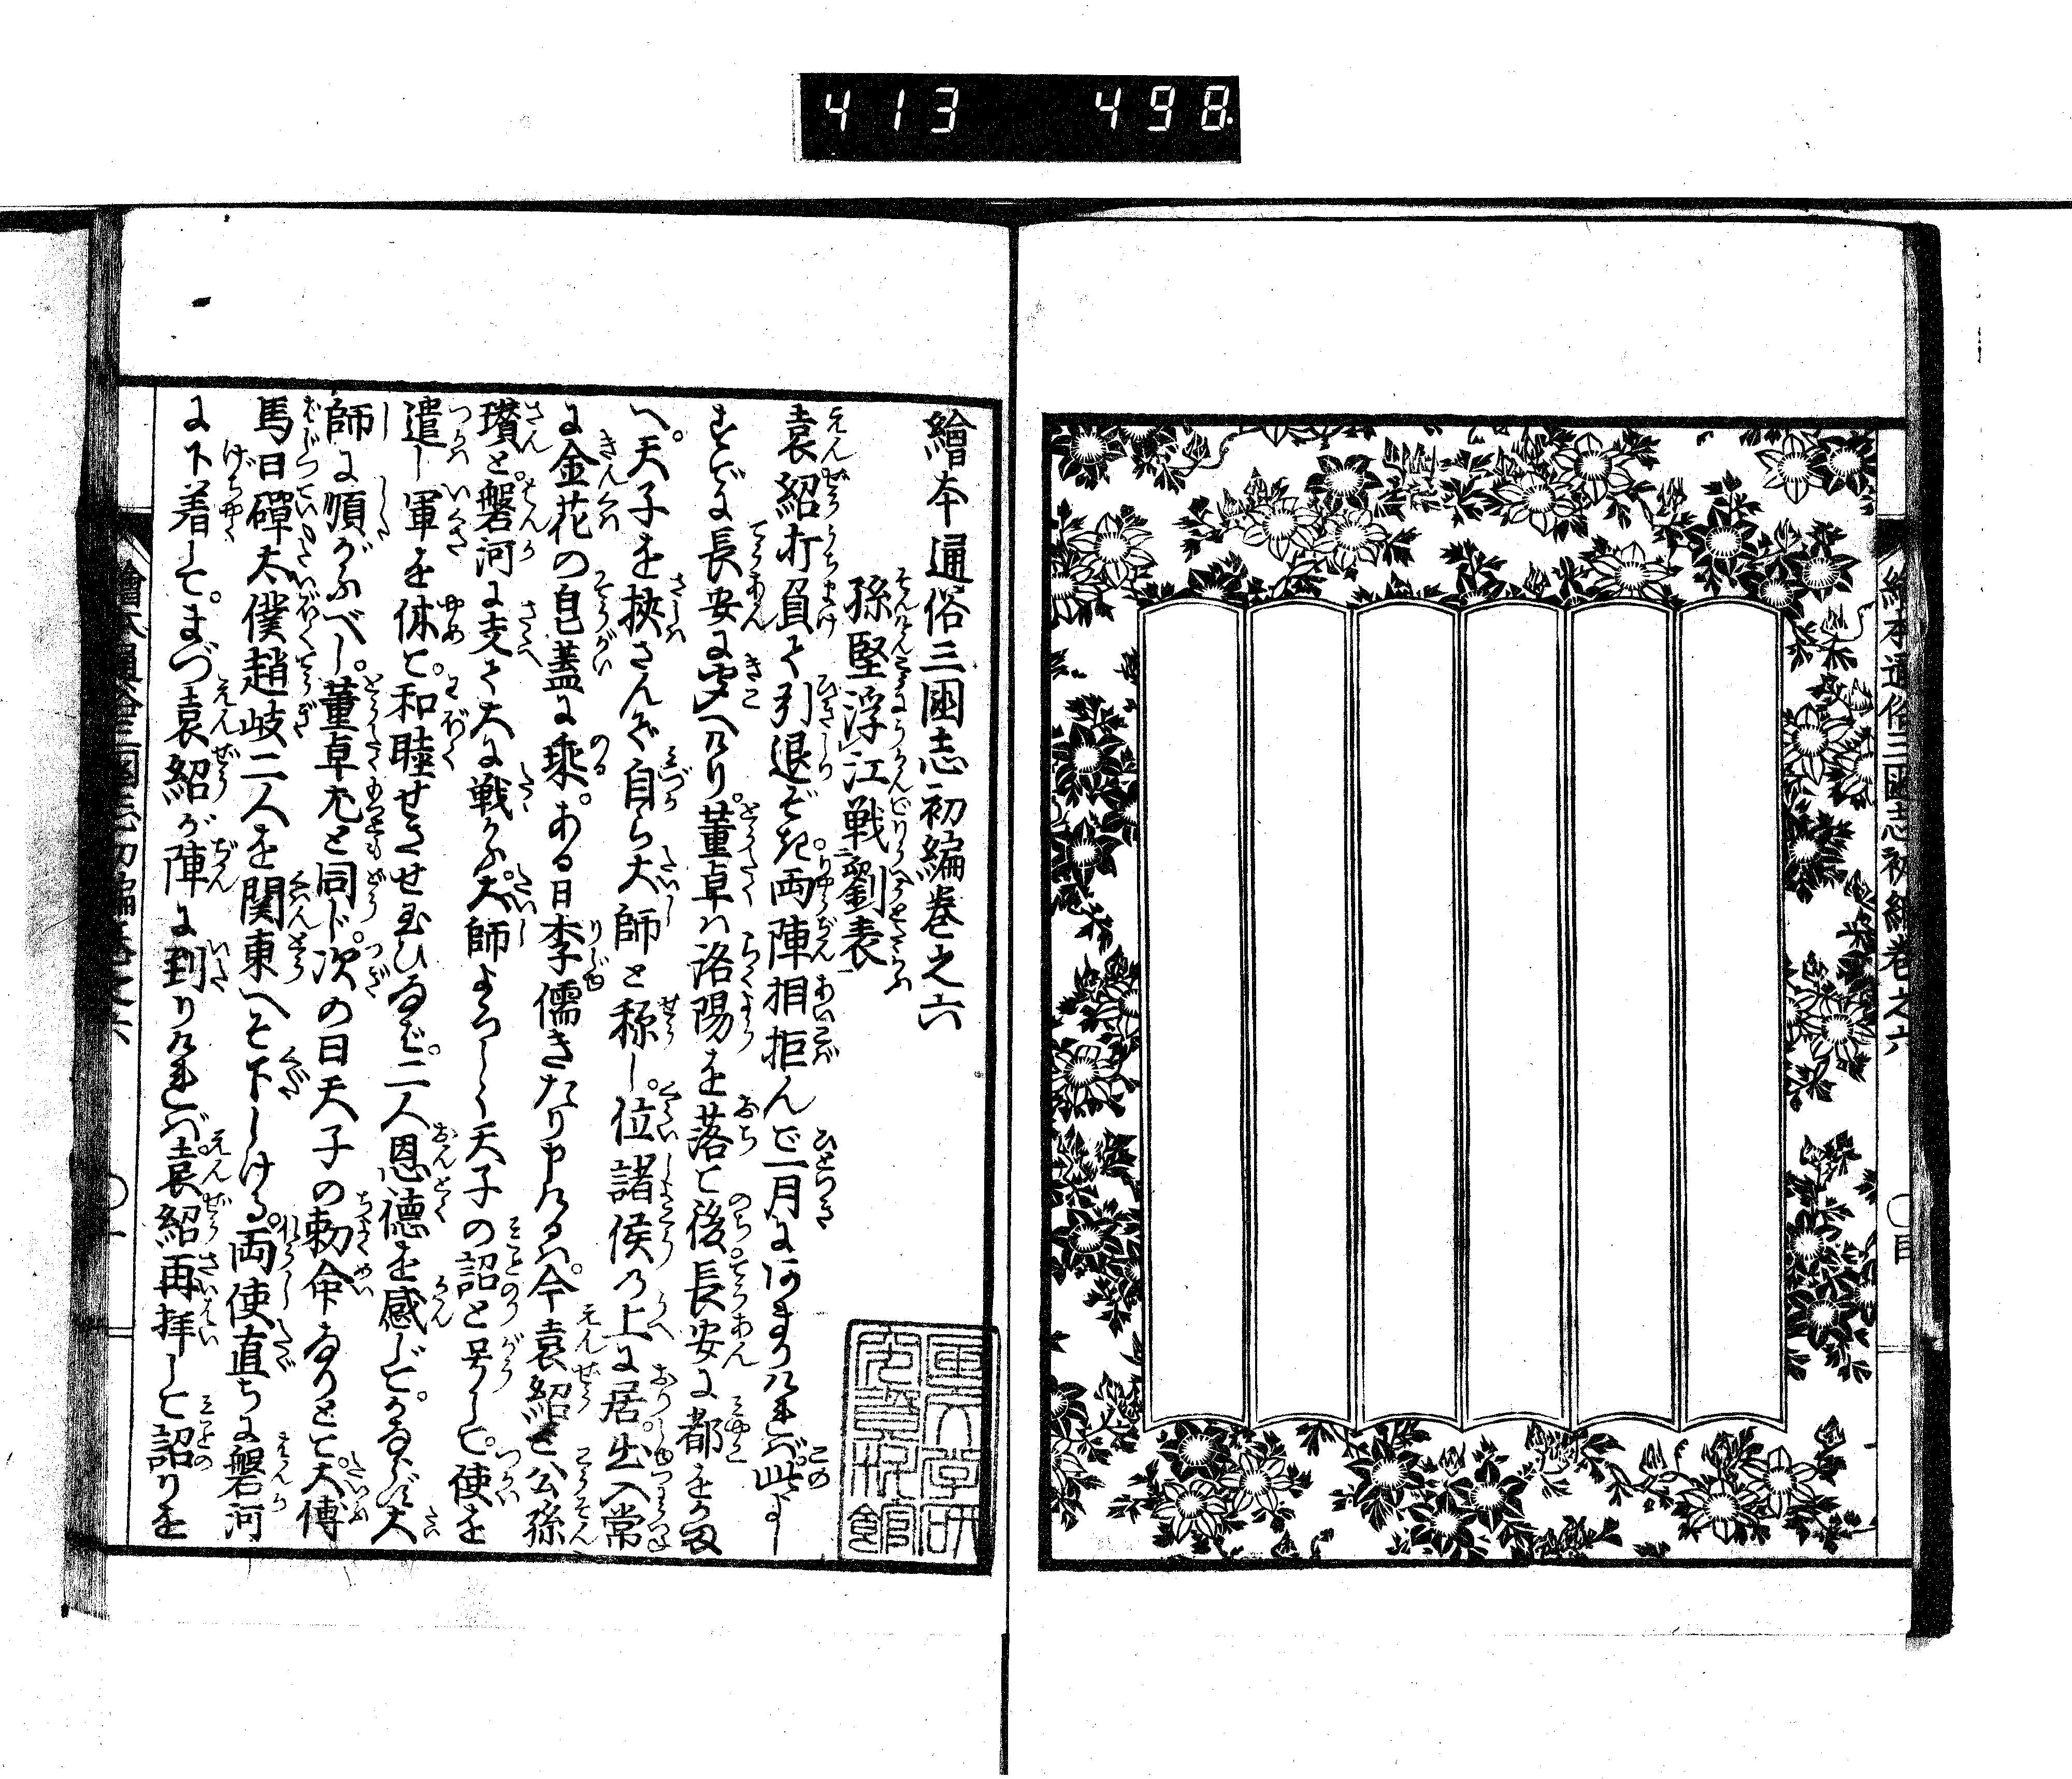 413 498
繪本通俗三國志初編巻之六
繪本通俗三國志初編巻之六
孫堅浮江戦劉表
袁紹打負て引退ぞき両陣相拒んで一月にあまりければ此よし
すでに長安に聞へけり。董卓は洛陽を落て後長安に都をかま
へ。天子を挾さんで自ら大師と称し。位諸侯の上に居。出入常
に金花の皂蓋に乗。ある日李儒きたり申けるは。今袁紹と公孫
瓚と。磐河に支て大に戦かふ。大師よろしく天子の詔と号して。使を
遣し軍を休て。和睦せさせ玉ひなば。二人恩徳を感じて。かならず大
師に順がふべし。董卓尤と同じ。次の日天子の勅命なりとて。大傅
馬日磾太僕趙岐二人を関東へぞ下しける。両使直ちに磐河
に下着して。まづ袁紹が陣に到りければ。袁紹再拝して詔りを